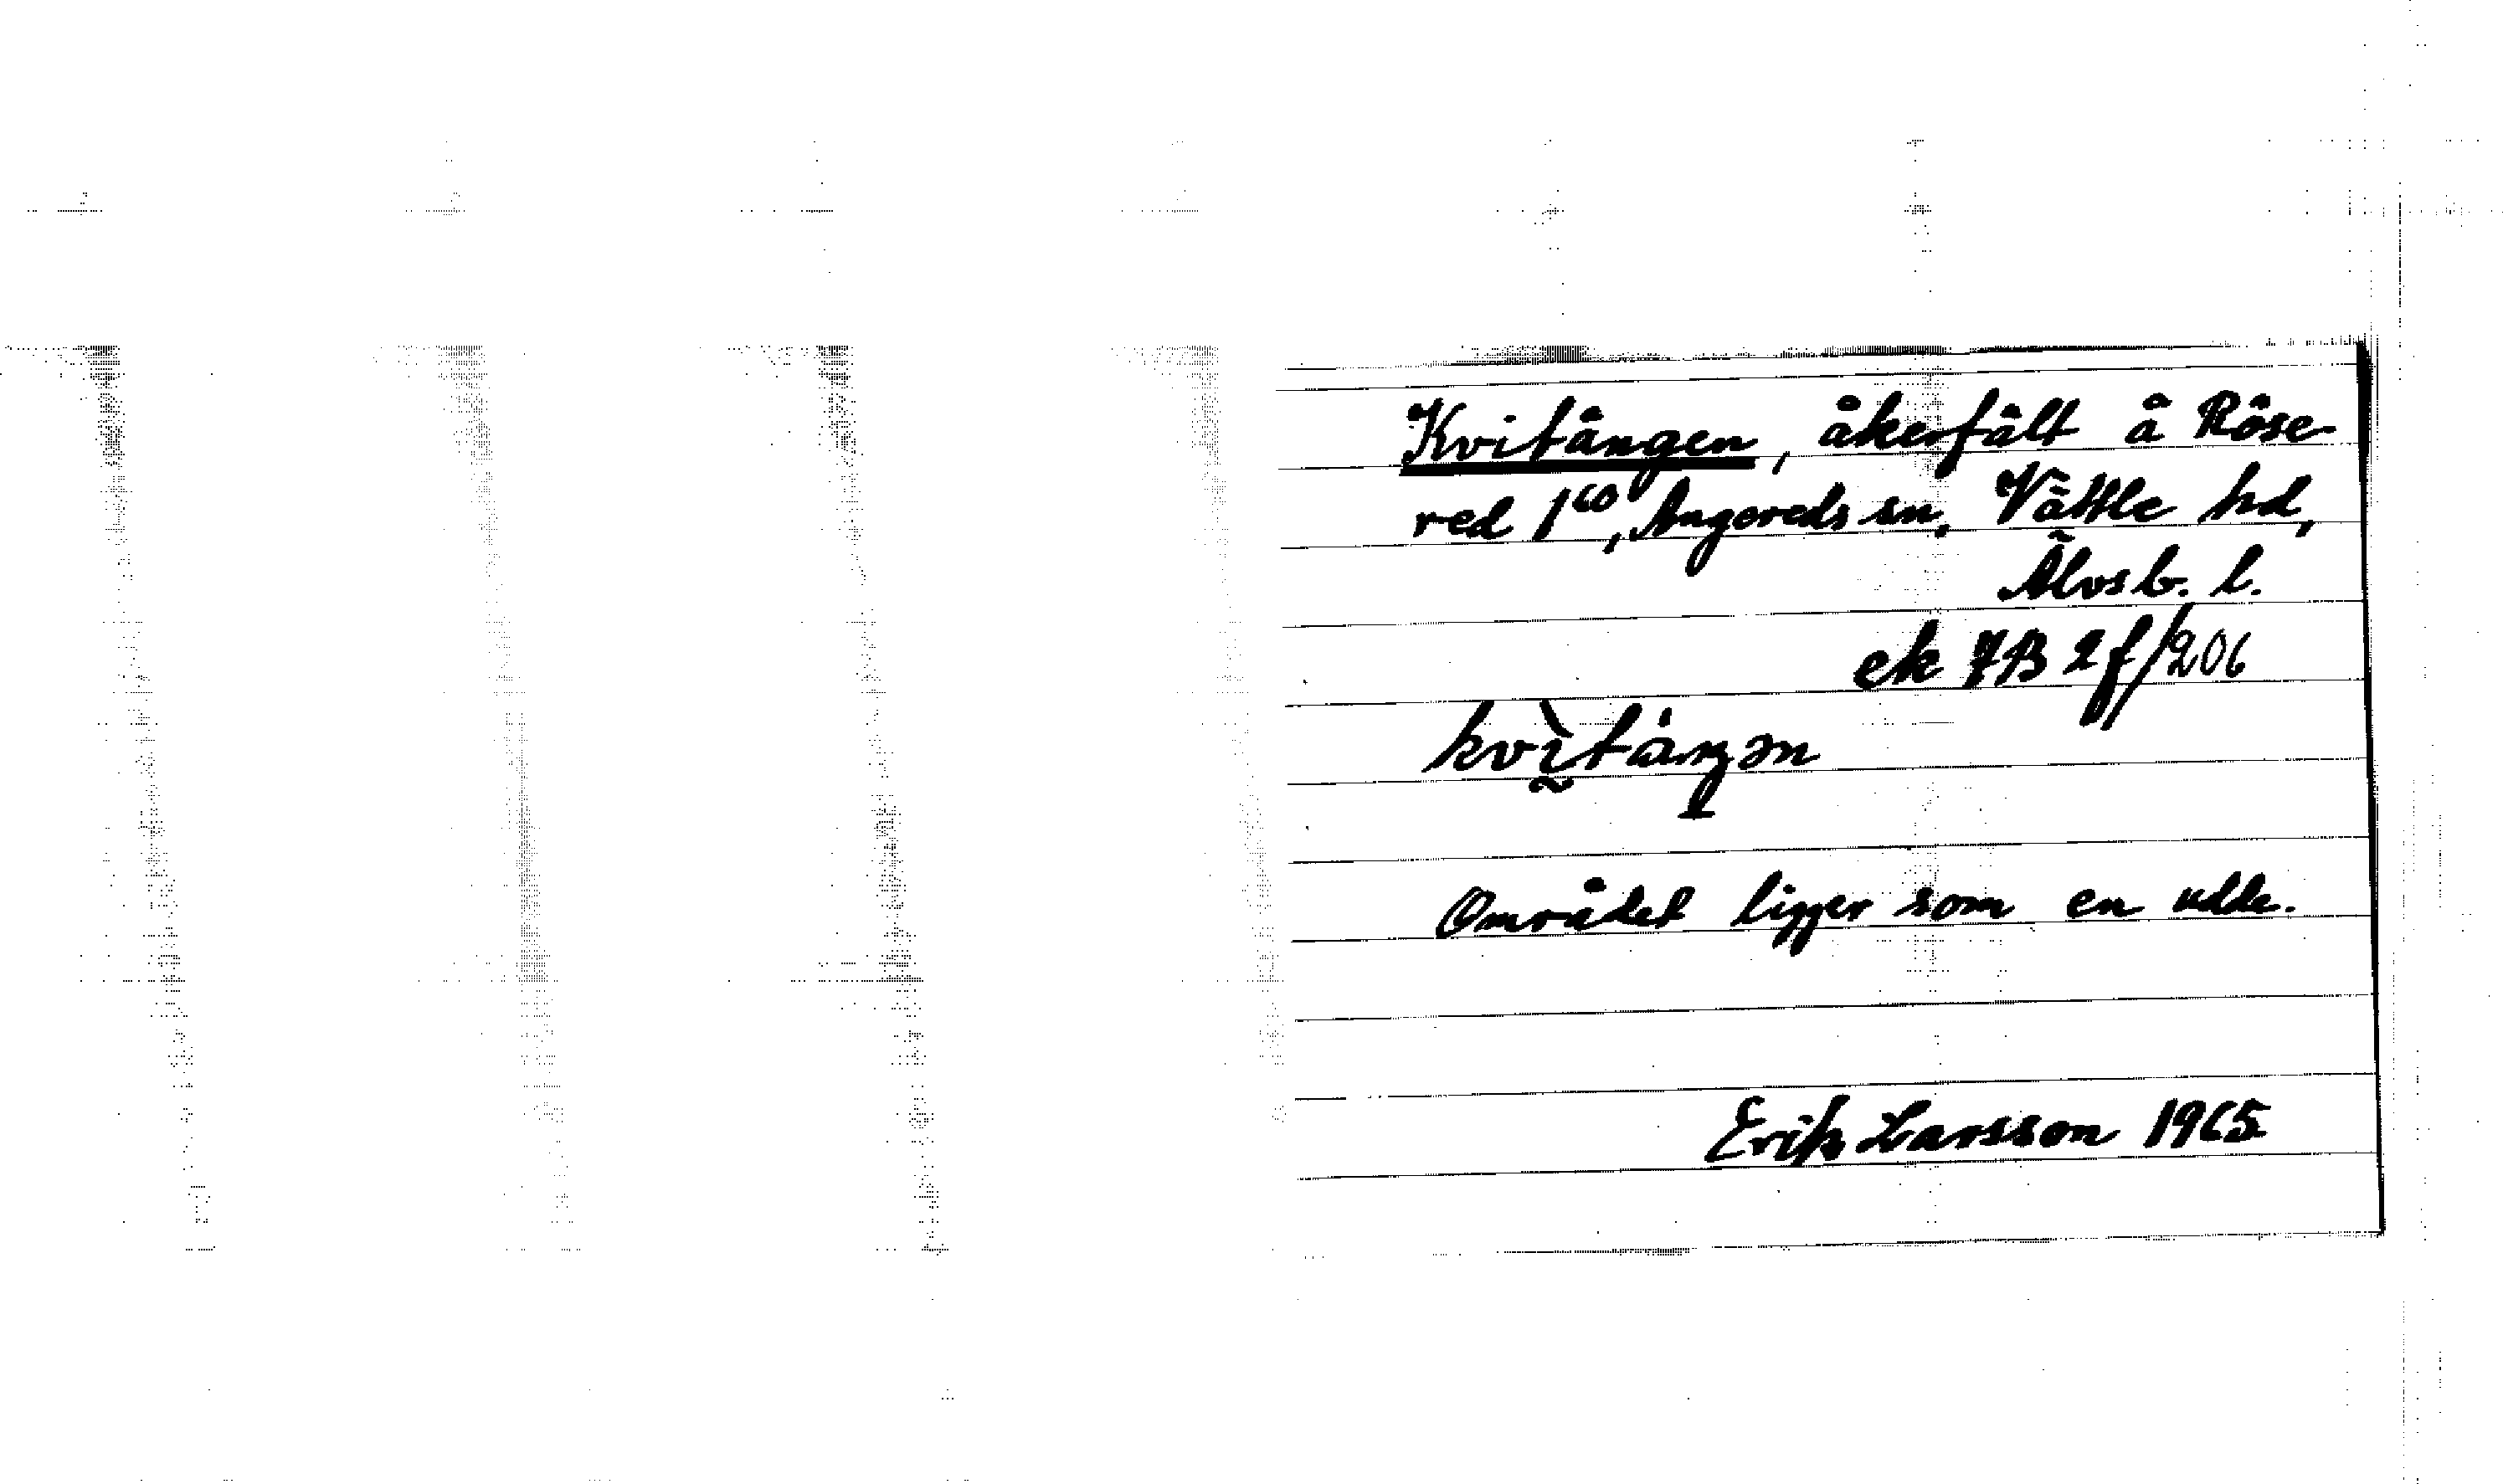 Kvitången, åkerfält å Röse-
red 1⁶⁰, Angereds sn, Vättle hd,
Älvsb. l.
ek 7B 2f/206
kvìtáŋən
Området ligger som en udde.
Erik Larsson 1965